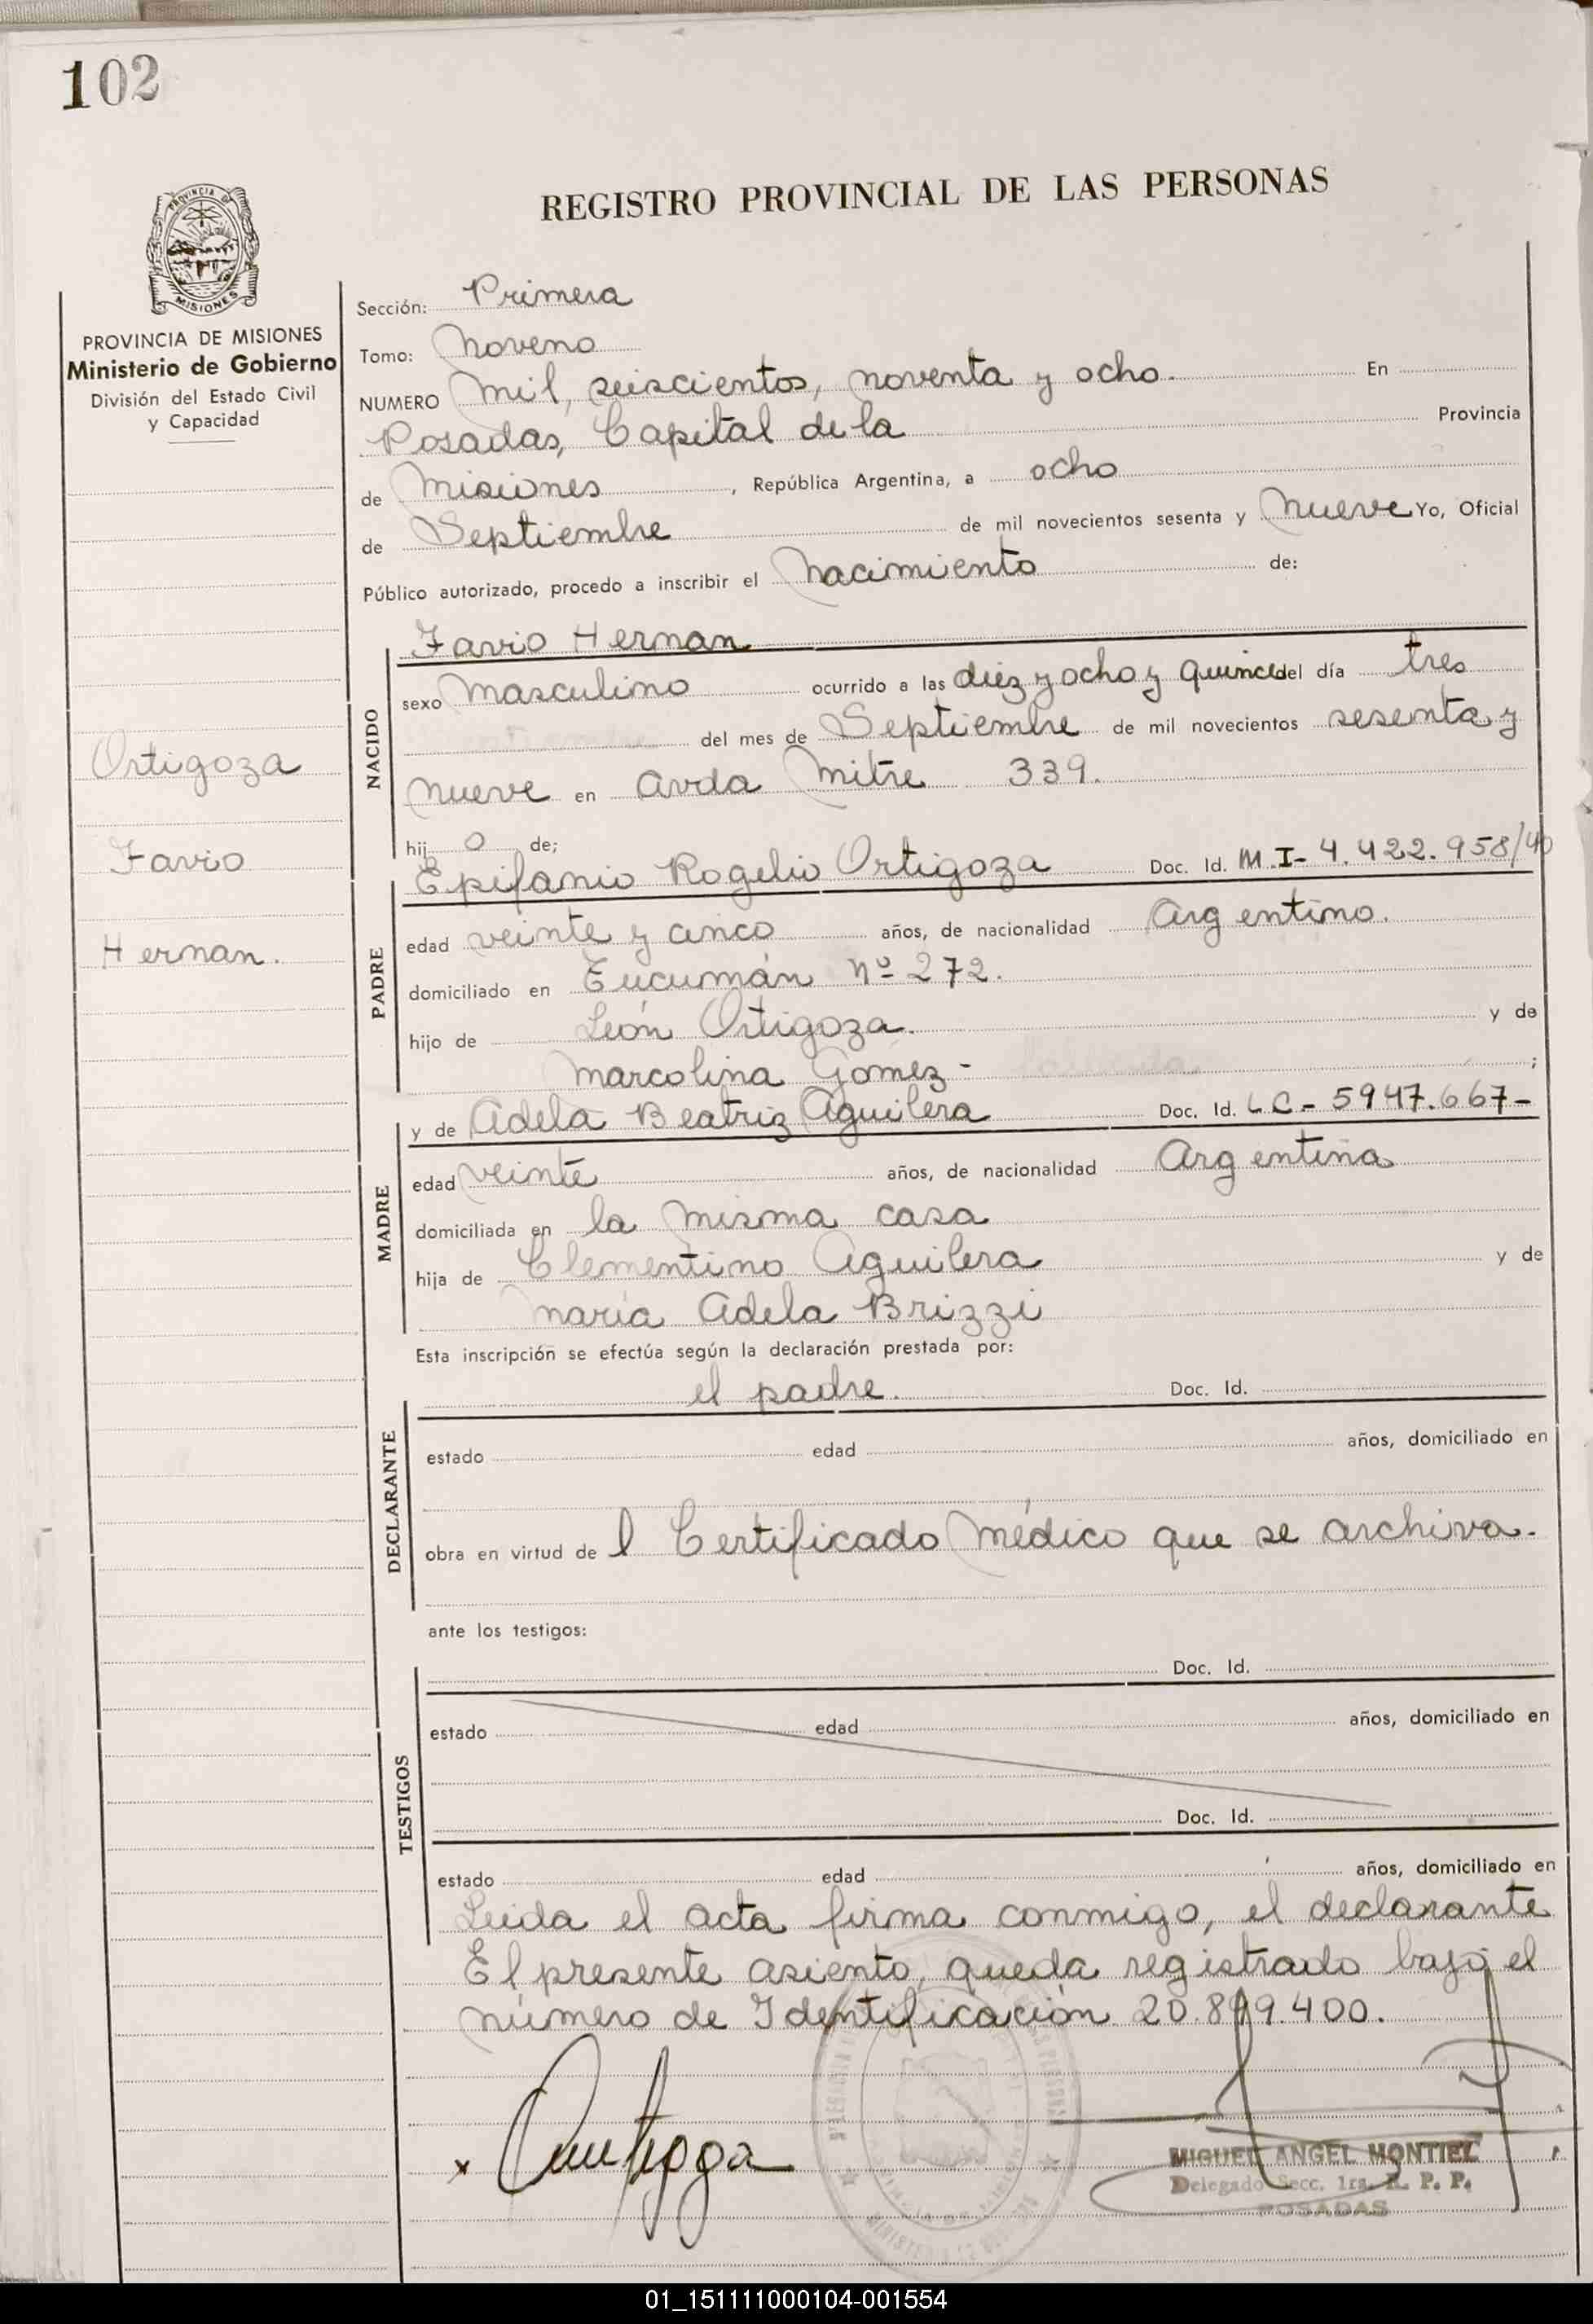 102
REGISTRO PROVINCIAL DE LAS PERSONAS
PROVINCIA DE MISIONES
Ministerio de Gobierno
División del Estado Civil
y Capacidad
Ortigoza
Favio
Hernan.
Sección: Primera
Tomo: Noveno
NUMERO Mil, seiscientos, noventa y ocho. En
Posadas, Capital de la Provincia
de Misiones, República Argentina, a ocho
de Septiembre de mil novecientos sesenta y Nueve Yo, Oficial
Público autorizado, procedo a inscribir el Nacimiento de:
Favio Hernan
NACIDO
sexo Masculino ocurrido a las diez y ocho y quince del día tres
del mes de Septiembre de mil novecientos sesenta y
Nueve en Avda Mitre 339.
hij o de;
Epifanio Rogelio Ortigoza Doc. Id. M.I- 4.422.958/40
PADRE
edad veinte y cinco años, de nacionalidad Argentino.
domiciliado en Tucumán Nº 272.
hijo de León Ortigoza. y de
Marcolina Gomez - ;
y de Adela Beatriz Aguilera Doc. Id. LC- 5947.667-
MADRE
edad veinte años, de nacionalidad Argentina
domiciliada en la misma casa
hija de Clementino Aguilera y de
María Adela Brizzi
Esta inscripción se efectúa según la declaración prestada por:
el padre. Doc. Id.
DECLARANTE
estado edad años, domiciliado en
obra en virtud de l Certificado Médico que se archiva.
ante los testigos:
Doc. Id.
TESTIGOS
estado edad años, domiciliado en
Doc. Id.
estado edad años, domiciliado en
Leida el acta firma conmigo, el declarante
El presente asiento, queda registrado bajo el
número de Identificación 20.899.400.
x Ortigoza
MIGUEL ANGEL MONTIEL
Delegado Secc. 1ra. R. P. P.
POSADAS
01_151111000104-001554